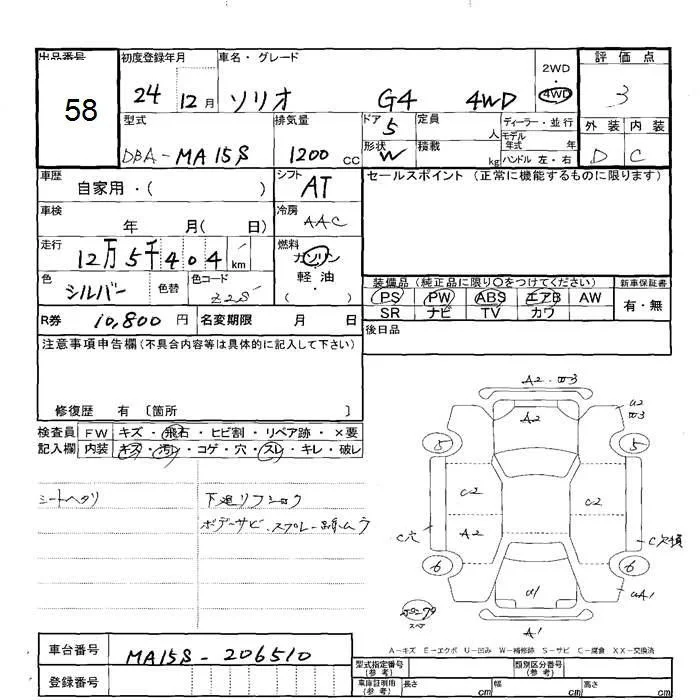 出品番号 初度登録年月 車名・グレード 2WD 評価点
58 24 12月 ソリオ G4 4WD 4WD 3
型式 排気量 ドア 5 定員 人 ディーラー・並行 外装 内装
DBA-MA15S 1200cc 形状 W 積載 kg モデル年式 年 D C
ハンドル 左・右
車歴 シフト セールスポイント (正常に機能するものに限ります)
自家用・( ) AT
車検 冷房
年 月( 日) AAC
走行 燃料
12万5千404 km ガソリン
軽・油
( )
色 シルバー 色替 色コード Z2S
装備品 (純正品に限り○をつけてください) 新車保証書
PS PW ABS エアB AW 有・無
SR ナビ TV カワ
R券 10,800円 名変期限 月 日 後日品
注意事項申告欄(不具合内容等は具体的に記入して下さい)
修復歴 有 〔箇所 〕
検査員 FW キズ・飛石・ヒビ割・リペア跡・×要
記入欄 内装 キズ・汚レ・コゲ・穴・スレ・キレ・破レ
シートヘタリ
ボデーサビ・スプレー
A2・W3
A2
U2
W3
5 5
C2 C2
A2
C穴 C欠損
6 6
U1
UA1
スペア
A1
A-キズ E-エクボ U-凹み W-補修跡 S-サビ C-腐食 XX-交換済
車台番号 MA15S-206510
型式指定番号 (参考) 類別区分番号 (参考)
登録番号 車庫証明用 (参考) 長さ cm 幅 cm 高さ cm